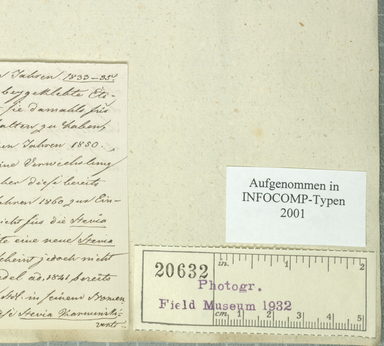 Jahren 1833–35
beygeklebte
sie damahls für
halten zu haben
Jahren 1850.
Verwechslung
diese bereits
Jahren 1860 zur
nicht für die Stevia
eine neue Stevia
scheint jedoch nicht
ad. 1841 bereits
in seinem Nomen
Stevia
Aufgenommen in
INFOCOMP-Typen
2001
20632
in. 1 2
Photogr.
Field Museum 1932
cm 1 2 3 4 5